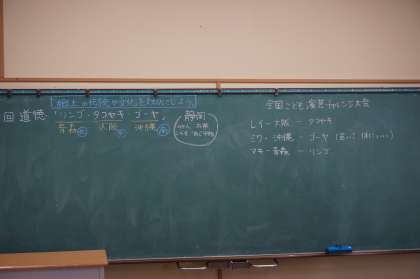 郷土の伝統や文化を大切にしよう
回 道徳 「リンゴ・タコヤキ・ゴーヤ」
青森 大阪 沖縄
静岡
全国こども演芸チャレンジ大会
レイ - 大阪 - タコヤキ
ミワ - 沖縄 - ゴーヤ
マモ - 青森 - リンゴ